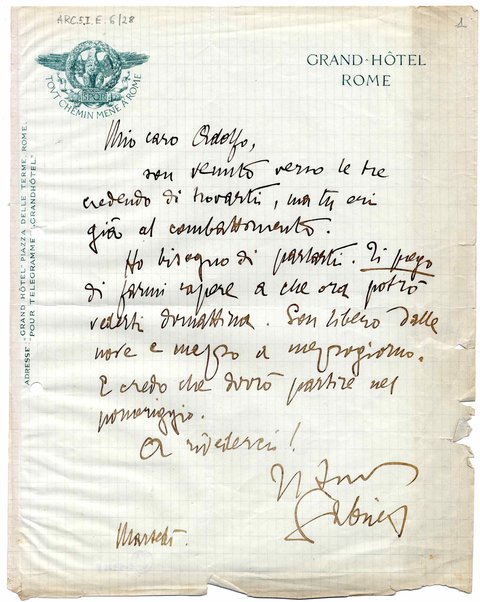 ARC.S.I. E. 6/28
1
TOUT CHEMIN MENE À ROME
GRAND-HÔTEL
ROME
ADRESSE „GRAND HÔTEL" PIAZZA DELLE TERME, ROME.
POUR TELEGRAMME „GRANDHÔTEL"
Mio caro Adolfo,
son venuto verso le tre
credendo di trovarti, ma tu eri
già al combattimento.
Ho bisogno di parlarti. Ti prego
di farmi sapere a che ora potrò
vederti domattina. Son libero dalle
nove e mezzo a mezzogiorno.
E credo che dovrò partire nel
pomeriggio.
A rivederci!
Martedì.